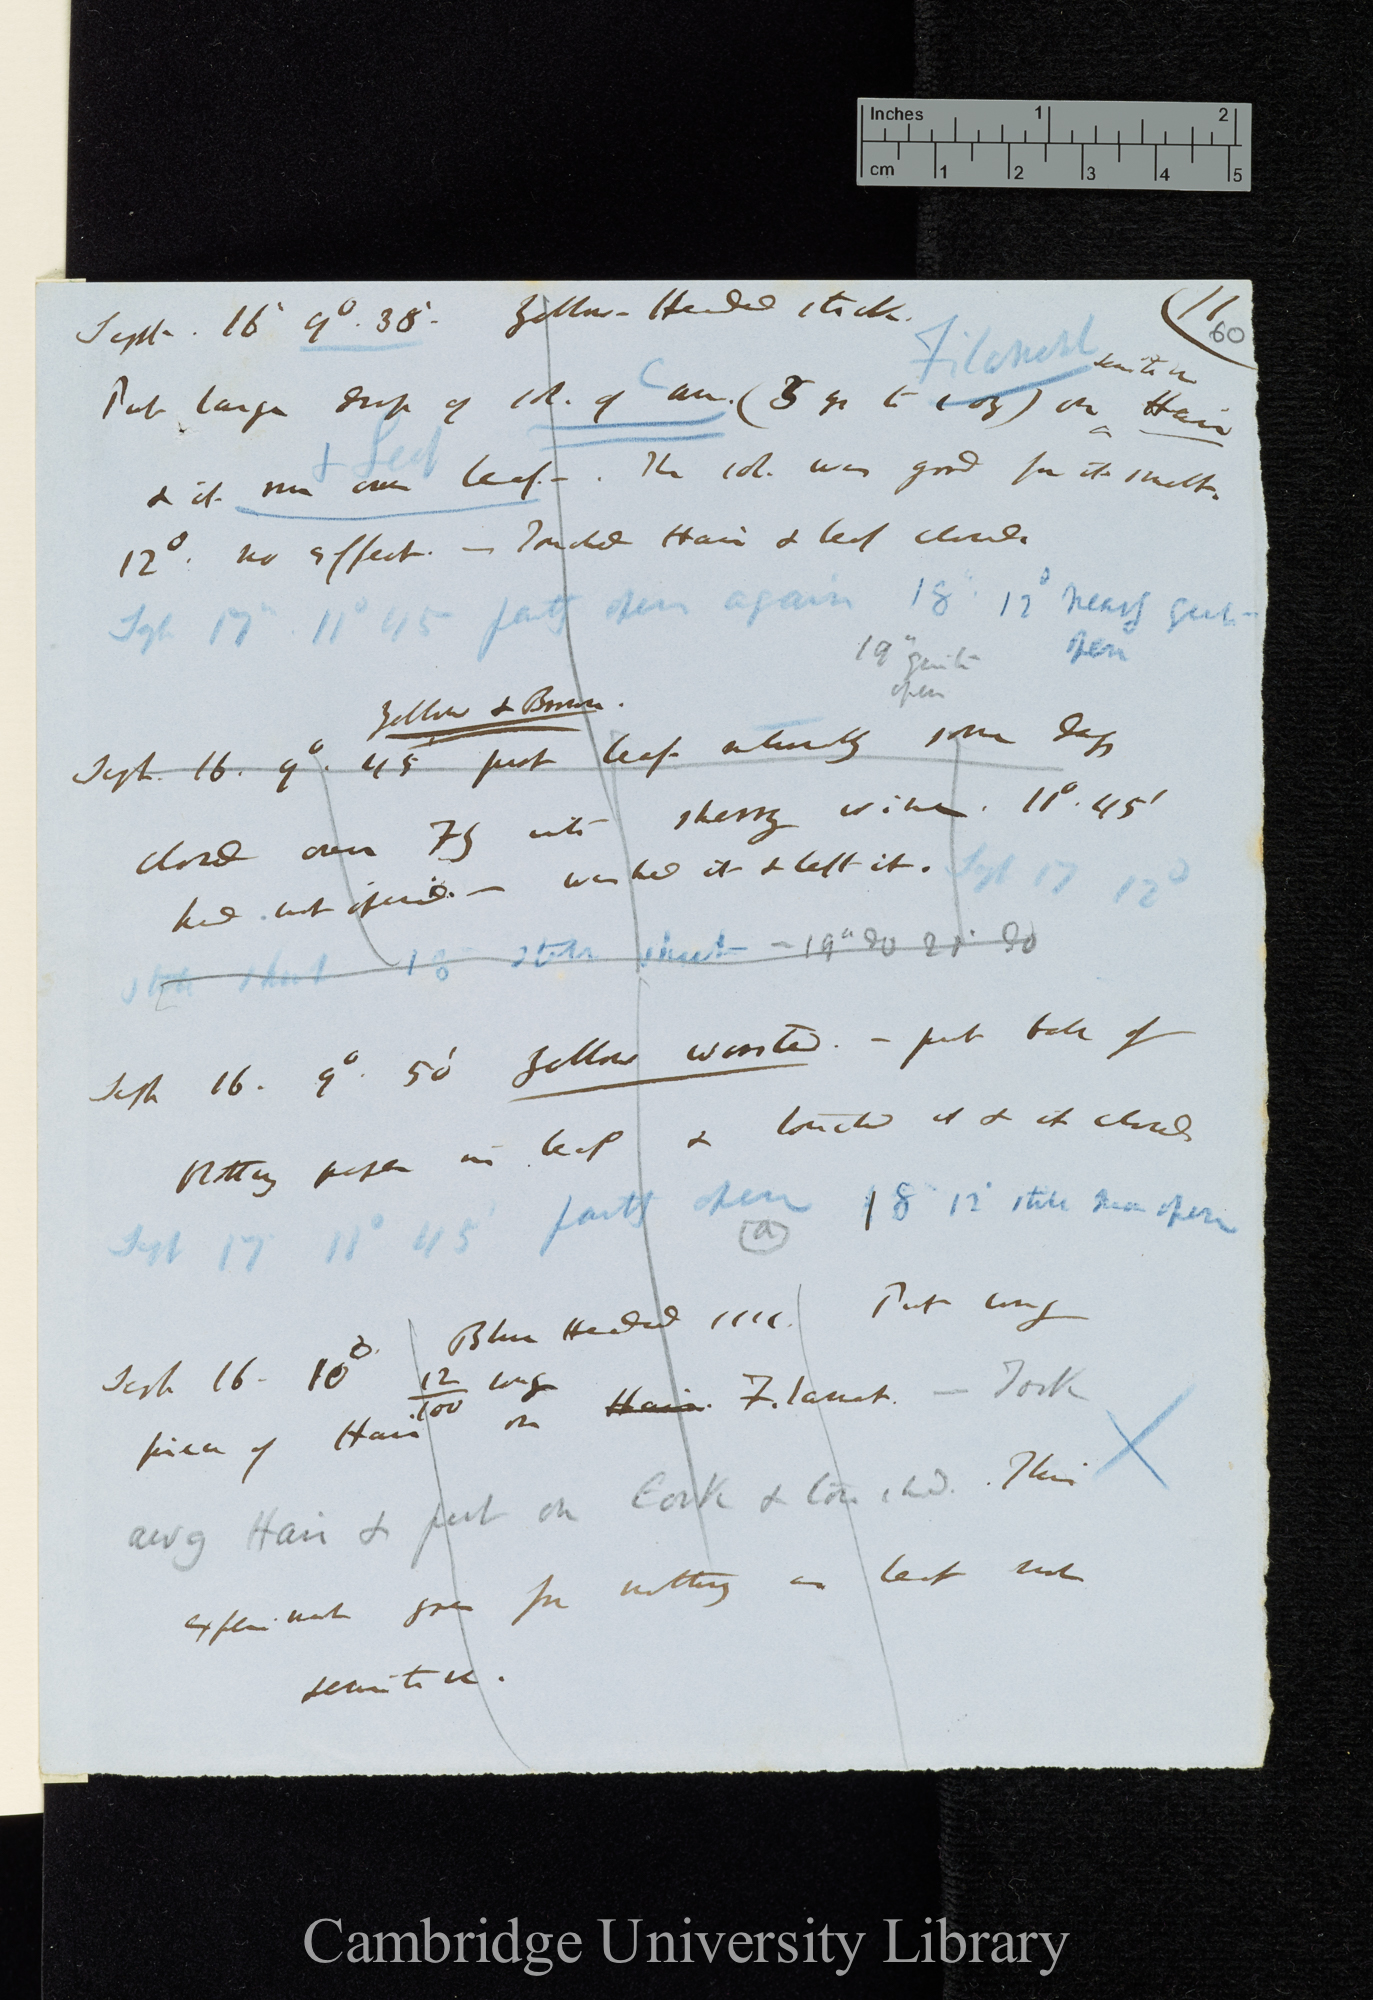 Inches 1 2
cm 1 2 3 4 5
(11
60
Sept. 16' 9°. 38'- Yellow-Headed stick.
Filament
sensitive
Put large drop of sol. of C am. (3 gr to 1 oz) on a Hair
& Leaf
& it run over leaf. —. The sol. was good for it smelt.
12°. no effect. — Touched Hair & leaf closed
Sept 17" 11° 45 partly open again 18" 12° nearly quite open
19" quite open
Yellow & Brown.
Sept. 16. 9°. 45' put leaf naturally some days
closed over fly into sherry wine. 11°. 45'
had not opened. — washed it & left it. Sept 17 12°
still shut 18 still shut — 19" do 21" do
Sept 16. 9°. 50' Yellow worsted. — put ball of
blotting paper in leaf & touched it & it closed
Sept 17 11° 45' partly open 18" 12° still open
(a)
Sept 16- 10°. Blue Headed 1111. Put long
12/100 long
piece of Hair on Hair. Filament. — Took
away Hair & put on Cork & touched. This
experiment goes for nothing as leaf not
sensitive.
Cambridge University Library